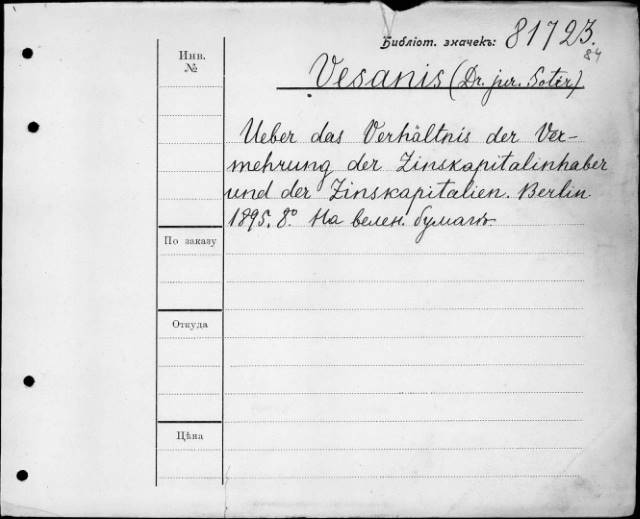 Библіот. значекъ: 81723.
84
Инв.
№
Vesanis (Dr. jur. Soter)
Ueber das Verhältnis der Ver-
mehrung der Zinskapitalinhaber
und der Zinskapitalien. Berlin
1895. 8º. На велен. бумагѣ.
По заказу
Откуда
Цѣна